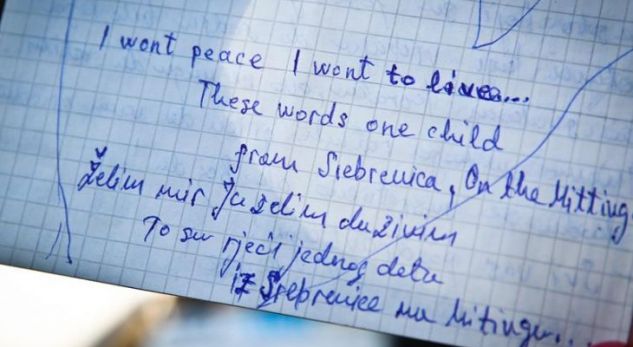 I wont peace I wont to live...
These words one child
from Srebrenica, On the Mitting
Želim mir Ja želim da živim
To su rječi jednog deta
iz Srebrenice na Mitingu...